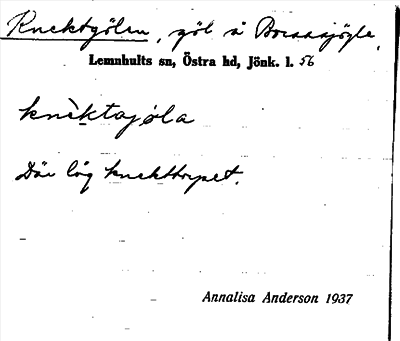 Knektgölen, göl å
Lemnhults sn, Östra hd, Jönk. l. 56
knèktajøla
Där låg knekttorpet.
Annalisa Anderson 1937